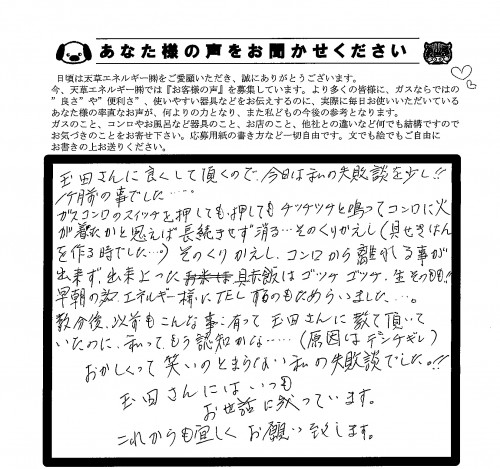 あなた様の声をお聞かせください
日頃は天草エネルギー㈱をご愛願いただき、誠にありがとうございます。
今、天草エネルギー㈱では『お客様の声』を募集しています。より多くの皆様に、ガスならではの
"良さ"や"便利さ"、使いやすい器具などをお伝えするのに、実際に毎日お使いいただいている
あなた様の率直なお声が、何よりの力となり、また私どもの今後の参考となります。
ガスのこと、コンロやお風呂など器具のこと、お店のこと、他社との違いなど何でも結構ですので
お気づきのことをお寄せ下さい。応募用紙の書き方など一切自由です。文でも絵でもご自由に
お書きの上お送りください。
玉田さんに良くして頂くので、今日は私の失敗談を少し!!
1ヶ月前の事でした・・・・
ガスコンロのスイッチを押しても、押してもチッチッチッと鳴ってコンロに火
が着たかと思えば長続きせず消る…そのくりかえし(貝せきはん
を作る時でした…)そのくりかえし、コンロから離れる事が
出来ず、出来上った 貝赤飯はゴツゲゴツゲ、生そのもの!!
早朝の為、エネルギー様にTELするのもためらいました…。
数分後、以前もこんな事に有って玉田さんに教て頂いて
いたのに、私って、もう認知かな……(原因はデンチギレ)
おかしくって笑いのとまらない私の失敗談でした。!!
玉田さんにはいつも
お世話に成っています。
これからも宜しくお願い致します。